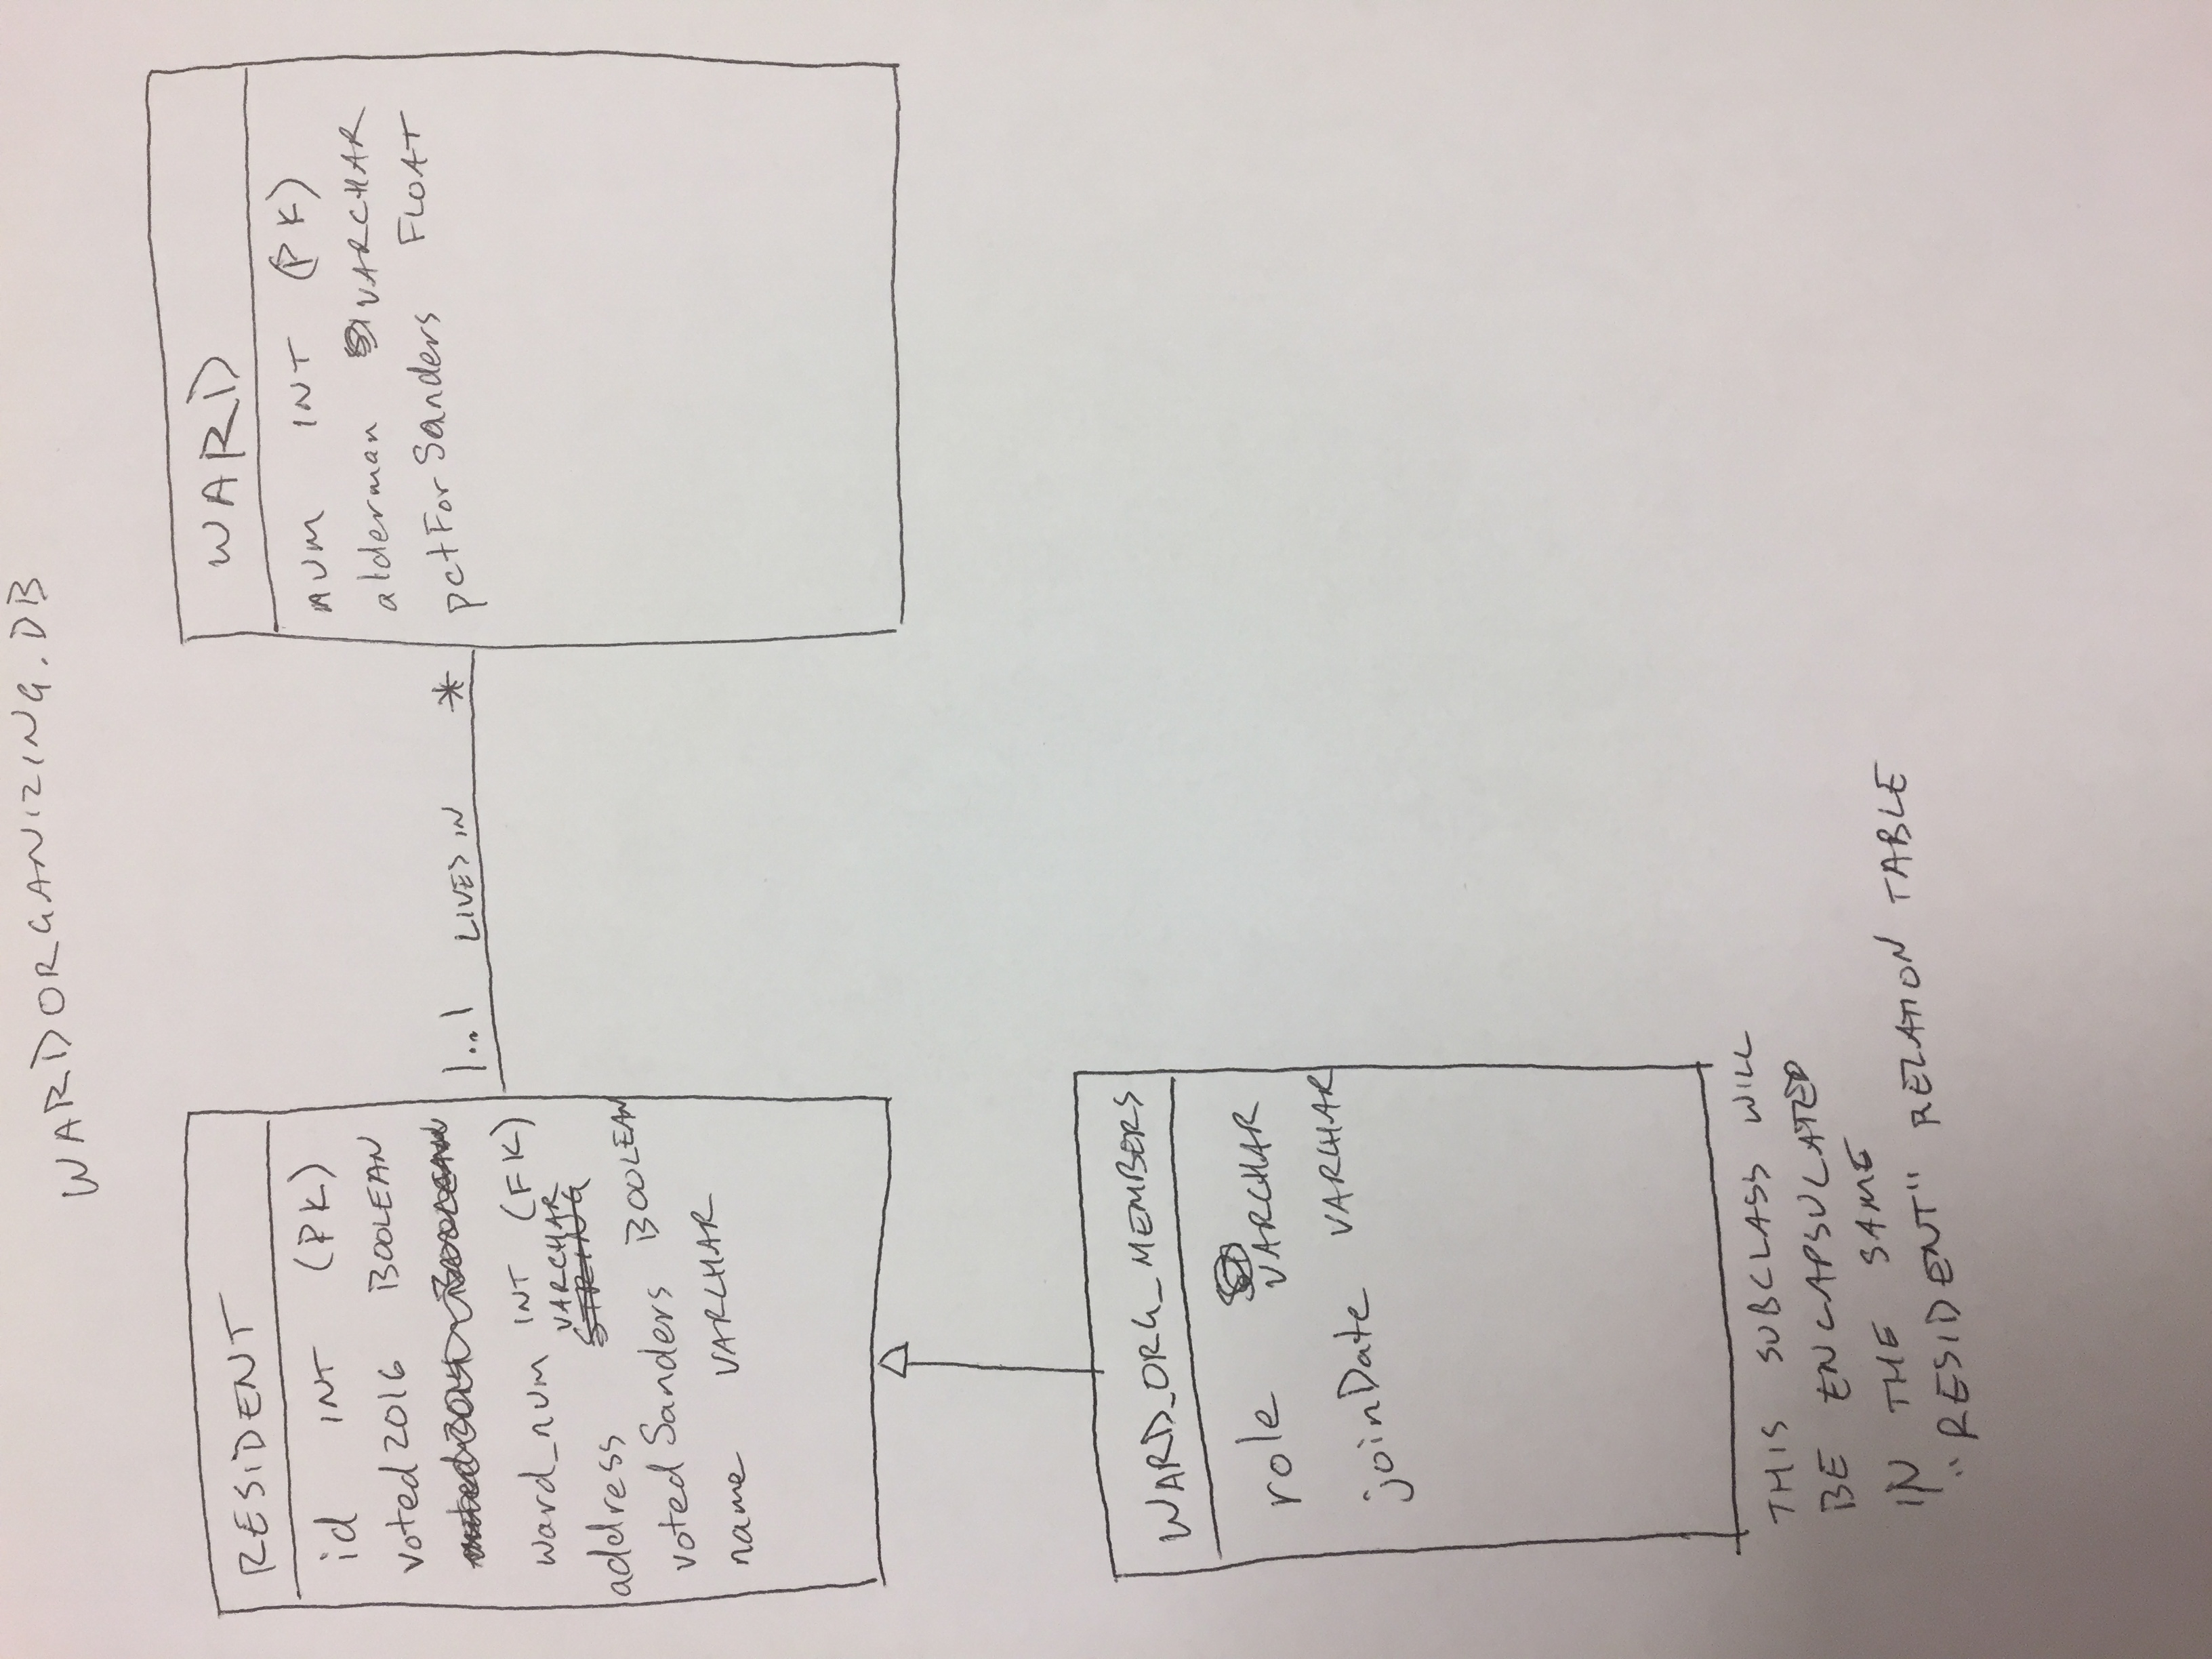 WARDORGANIZING.DB
RESIDENT
id INT (PK)
voted2016 BOOLEAN
ward_num INT (FK)
address VARCHAR STRING
votedSanders BOOLEAN
name VARCHAR
1..1 LIVES IN *
WARD
num INT (PK)
alderman VARCHAR
pctForSanders FLOAT
WARD_ORG_MEMBERS
role VARCHAR
joinDate VARCHAR
THIS SUBCLASS WILL
BE ENCAPSULATED
IN THE SAME
"RESIDENT" RELATION TABLE